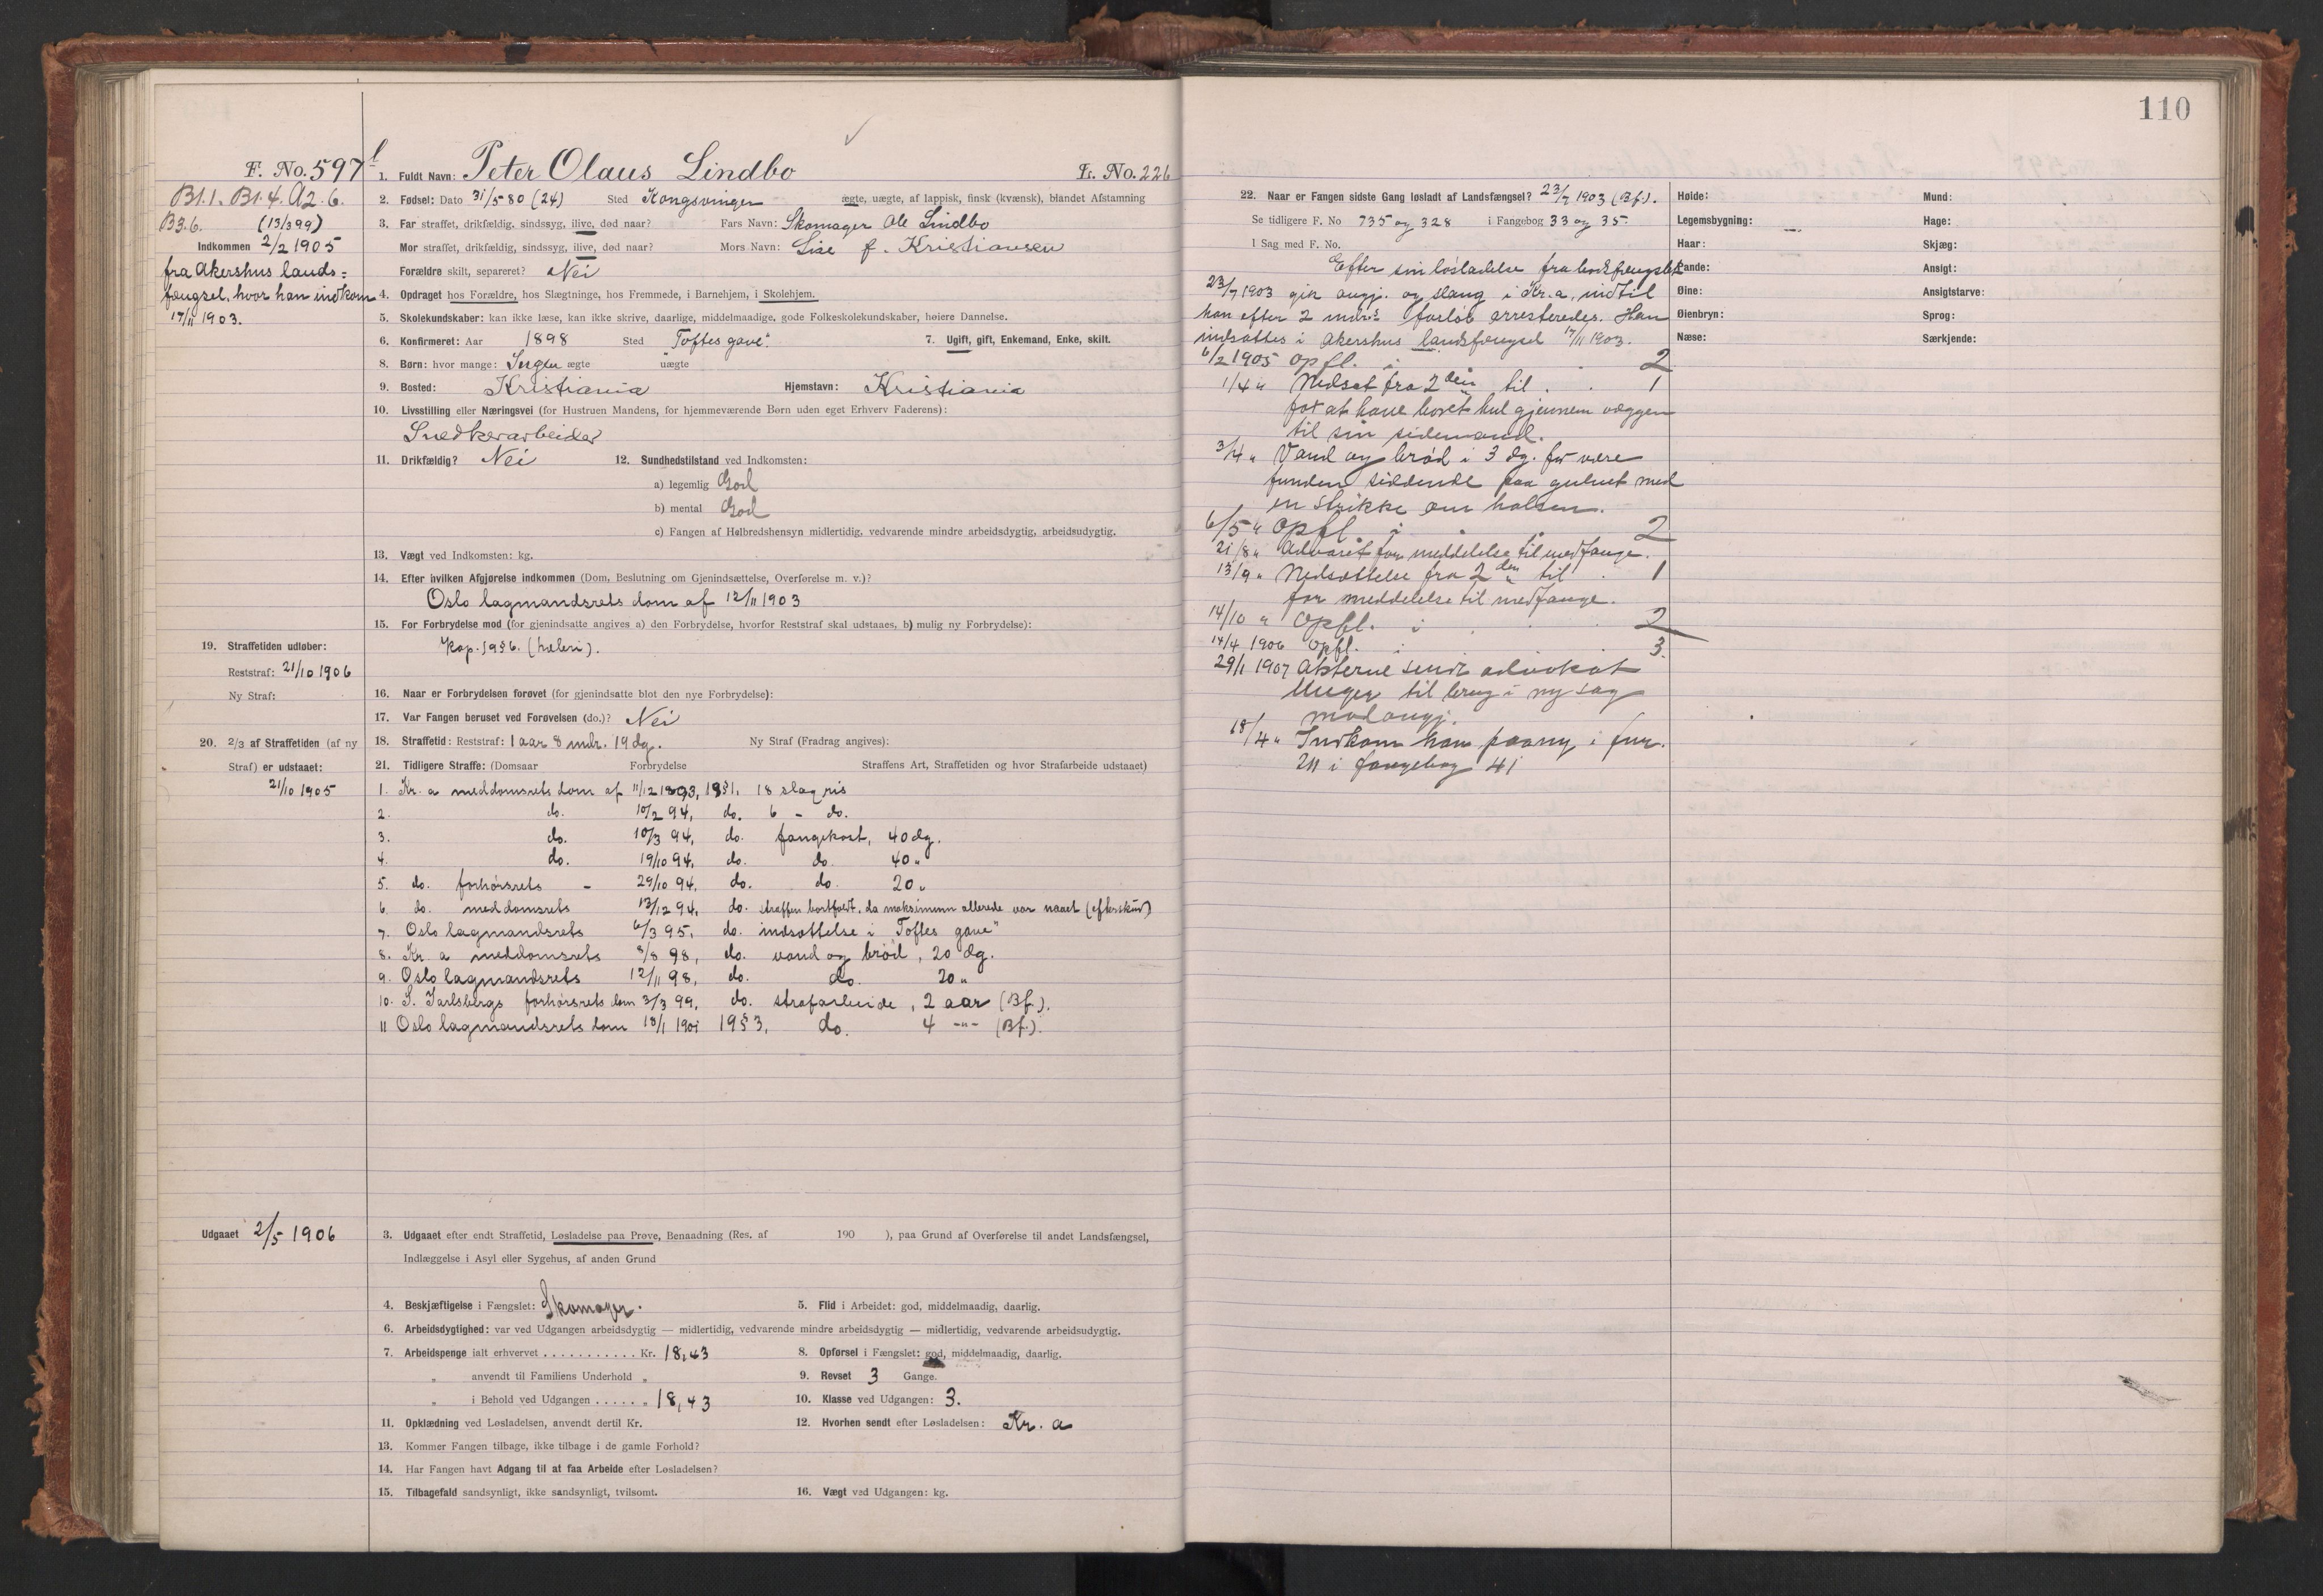 110
F. No. 597 b
1. Fuldt Navn: Peter Olaus Lindbo
Fr. No. 226
B1.1. B1.4. A2.6.
B3.6. (13/3 99)
Indkommen 2/2 1905
fra Akershus lands=
fængsel, hvor han indkom
17/11 1903.
2. Fødsel: Dato 31/5 80 (24) Sted Kongsvinger ægte, uægte, af lappisk, finsk (kvænsk), blandet Afstamning
3. Far straffet, drikfældig, sindssyg, ilive, død naar? Fars Navn: Skomager Ole Lindbo
Mor straffet, drikfældig, sindssyg, ilive, død naar? Mors Navn: Lise f. Kristiansen
Forældre skilt, separeret? Nei
4. Opdraget hos Forældre, hos Slægtninge, hos Fremmede, i Barnehjem, i Skolehjem.
5. Skolekundskaber: kan ikke læse, kan ikke skrive, daarlige, middelmaadige, gode Folkeskolekundskaber, høiere Dannelse.
6. Konfirmeret: Aar 1898 Sted "Toftes gave". 7. Ugift, gift, Enkemand, Enke, skilt.
8. Børn: hvor mange: Ingen ægte uægte
9. Bosted: Kristiania Hjemstavn: Kristiania
10. Livsstilling eller Næringsvei (for Hustruen Mandens, for hjemmeværende Børn uden eget Erhverv Faderens):
Snedkerarbeider
11. Drikfældig? Nei 12. Sundhedstilstand ved Indkomsten:
a) legemlig God
b) mental God
c) Fangen af Helbredshensyn midlertidig, vedvarende mindre arbeidsdygtig, arbeidsudygtig.
13. Vægt ved Indkomsten: kg.
14. Efter hvilken Afgjørelse indkommen (Dom, Beslutning om Gjenindsættelse, Overførelse m. v.)?
Oslo lagmandsrets dom af 12/11 1903
15. For Forbrydelse mod (for gjenindsatte angives a) den Forbrydelse, hvorfor Reststraf skal udstaaes, b) mulig ny Forbrydelse):
Kap. 19 § 6. (hæleri).
19. Straffetiden udløber:
Reststraf: 21/10 1906
Ny Straf:
16. Naar er Forbrydelsen forøvet (for gjenindsatte blot den nye Forbrydelse):
17. Var Fangen beruset ved Forøvelsen (do.)? Nei
20. 2/3 af Straffetiden (af ny
Straf) er udstaaet:
21/10 1905
18. Straffetid: Reststraf: 1 aar 8 mdr. 19 dg. Ny Straf (Fradrag angives):
21. Tidligere Straffe: (Domsaar Forbrydelse Straffens Art, Straffetiden og hvor Strafarbeide udstaaet)
1. Kr. a meddomsrets dom af 11/12 1893, 19§1, 18 slag ris
2. do. 10/2 94, do. 6 - do.
3. do. 10/3 94, do. fangekost, 40 dg.
4. do. 19/10 94, do. do. 40 "
5. do. forhørsrets - 29/10 94, do. do. 20 "
6. do. meddomsrets 13/12 94, do. straffen bortfaldt, da maksimum allerede var naaet (efterskud)
7. Oslo lagmandsrets 6/3 95, do. indsættelse i "Toftes gave"
8. Kr. a meddomsrets 3/8 98, do. vand og brød, 20 dg.
9. Oslo lagmandsrets 12/11 98, do. do. 20 "
10. S. Jarlsbergs forhørsrets dom 3/3 99, do. strafarbeide, 2 aar (Bf.).
11 Oslo lagmandsrets dom 18/1 1901 19§3, do. 4 -"- (Bf.).
Udgaaet 2/5 1906
3. Udgaaet efter endt Straffetid, Løsladelse paa Prøve, Benaadning (Res. af 190 ), paa Grund af Overførelse til andet Landsfængsel,
Indlæggelse i Asyl eller Sygehus, af anden Grund
4. Beskjæftigelse i Fængslet: Skomager. 5. Flid i Arbeidet: god, middelmaadig, daarlig.
6. Arbeidsdygtighed: var ved Udgangen arbeidsdygtig — midlertidig, vedvarende mindre arbeidsdygtig — midlertidig, vedvarende arbeidsudygtig.
7. Arbeidspenge ialt erhvervet . . . . . . . . . . . Kr. 18,43 8. Opførsel i Fængslet: god, middelmaadig, daarlig.
" anvendt til Familiens Underhold " 9. Revset 3 Gange.
" i Behold ved Udgangen . . . . . " 18,43 10. Klasse ved Udgangen: 3.
11. Opklædning ved Løsladelsen, anvendt dertil Kr. 12. Hvorhen sendt efter Løsladelsen: Kr. a
13. Kommer Fangen tilbage, ikke tilbage i de gamle Forhold?
14. Har Fangen havt Adgang til at faa Arbeide efter Løsladelsen?
15. Tilbagefald sandsynligt, ikke sandsynligt, tvilsomt. 16. Vægt ved Udgangen: kg.
22. Naar er Fangen sidste Gang løsladt af Landsfængsel? 23/7 1903 (Bf.).
Se tidligere F. No 735 og 328 i Fangebog 33 og 35
I Sag med F. No.
Efter sin løsladelse fra bodsfængslet
23/7 1903 gik angj. og slang i Kr.a, indtil
han efter 2 mdr.s forløb arresteredes. Han
indsattes i Akershus landsfængsel 17/11 1903.
6/2 1905 Opfl. i . . 2
1/4 " Nedsat fra 2den til . . 1
for at have boret hul gjennem væggen
til sin sidemand.
3/4 " Vand og brød i 3 dg. for være
funden siddende paa gulvet med
en strikke om halsen.
6/5 " Opfl. i . . 2
21/8 " Advaret for meddelelse til medfange.
13/9 " Nedsættelse fra 2den til . 1
for meddelelse til medfange.
14/10 " Opfl. i . . 2
14/4 1906 Opfl. i 3.
29/1 1907 Akterne sendt advokat
Unger til brug i ny sag
mod angj.
18/4 " Indkom han paany i fnr.
211 i fangebog 41
Høide: Mund:
Legemsbygning: Hage:
Haar: Skjæg:
Pande: Ansigt:
Øine: Ansigtsfarve:
Øienbryn: Sprog:
Næse: Særkjende: